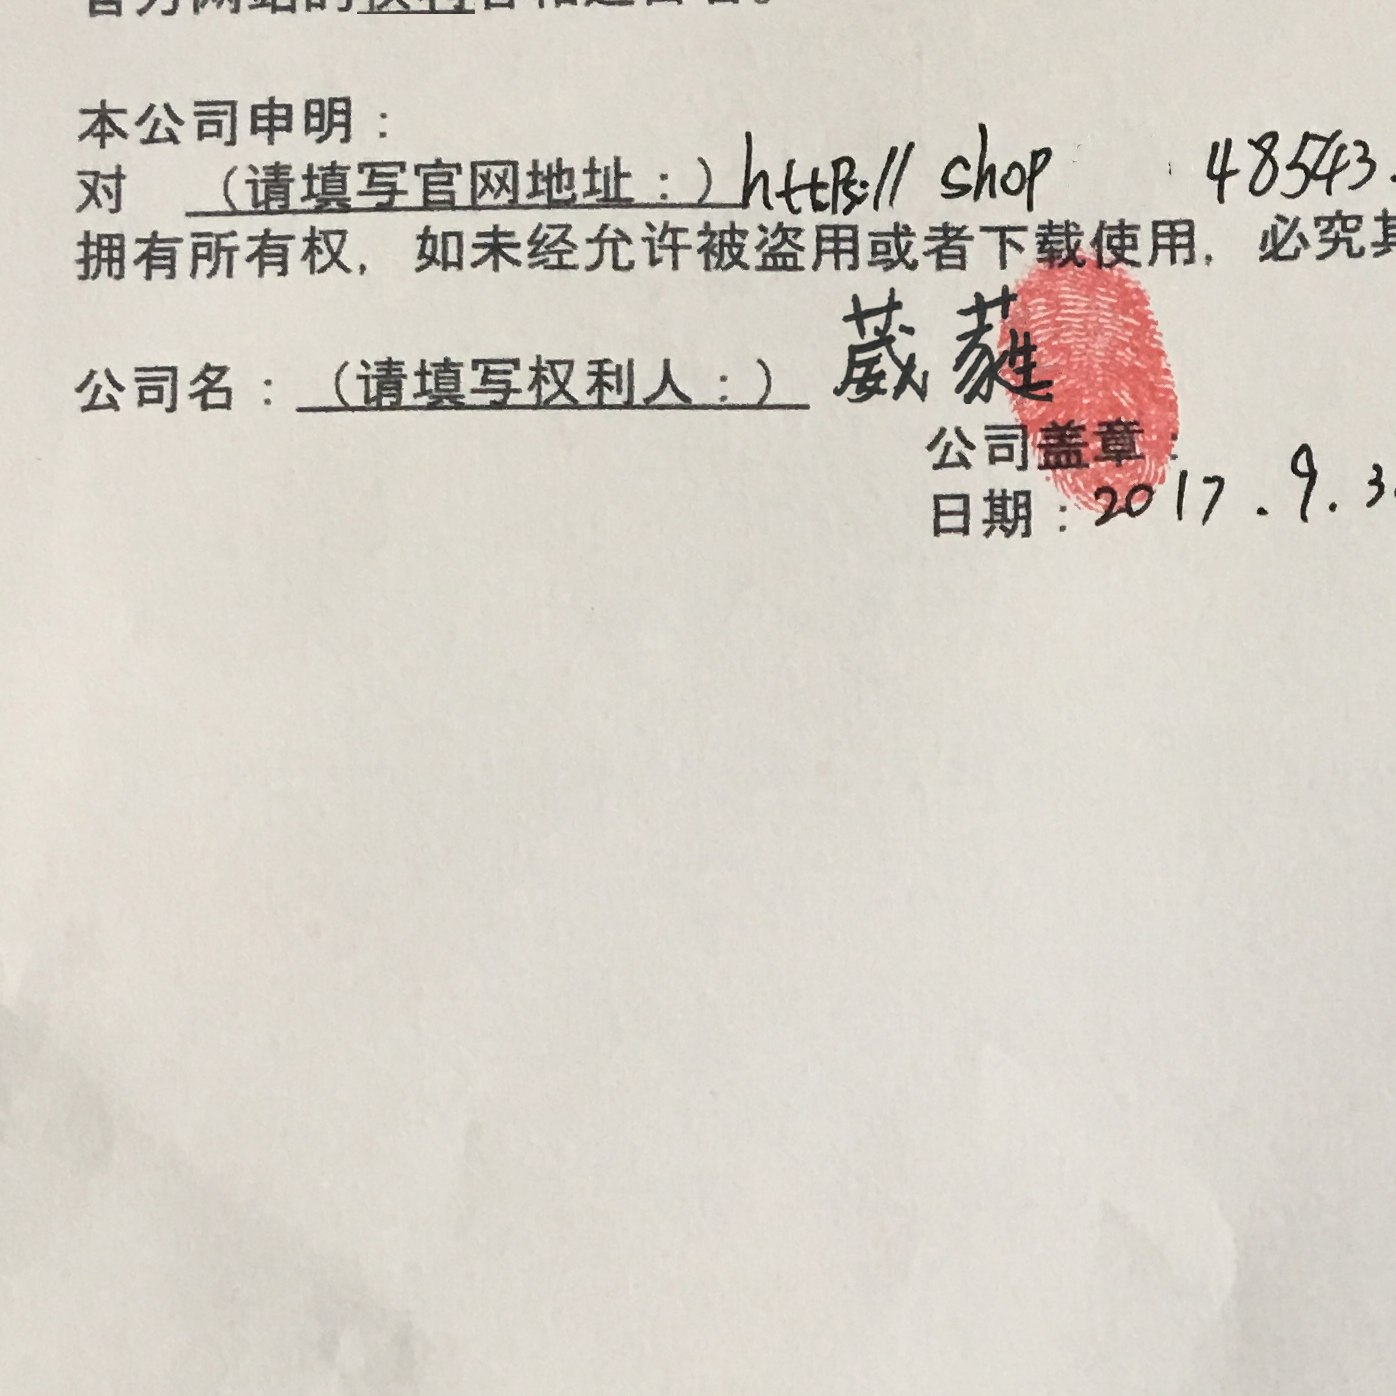 官方网站的权利者和运营者。
本公司申明：
对 （请填写官网地址：）https:// shop 48543.
拥有所有权，如未经允许被盗用或者下载使用，必究其
公司名：（请填写权利人：）
公司盖章：
日期：2017.9.3